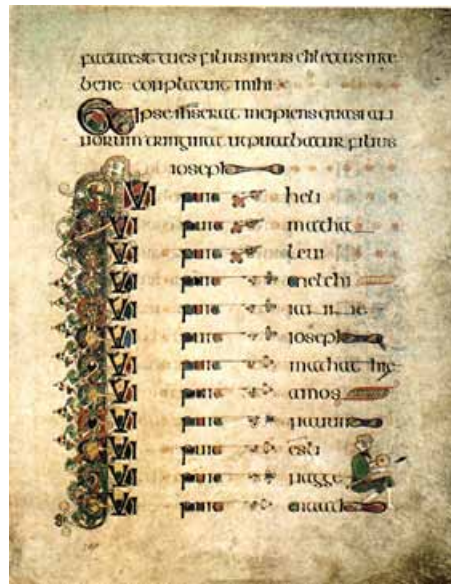 facta est tu es filius meus dilectus in te
bene conplacuit mihi
Et ipse ihs erat incipiens quasi an
norum triginta ut putabatur filius
ioseph
QUI fuit heli
QUI fuit matha
QUI fuit leui
QUI fuit melchi
QUI fuit
QUI fuit ioseph
QUI fuit mathathie
QUI fuit amos
QUI fuit nauum
QUI fuit esli
QUI fuit nagge
QUI fuit